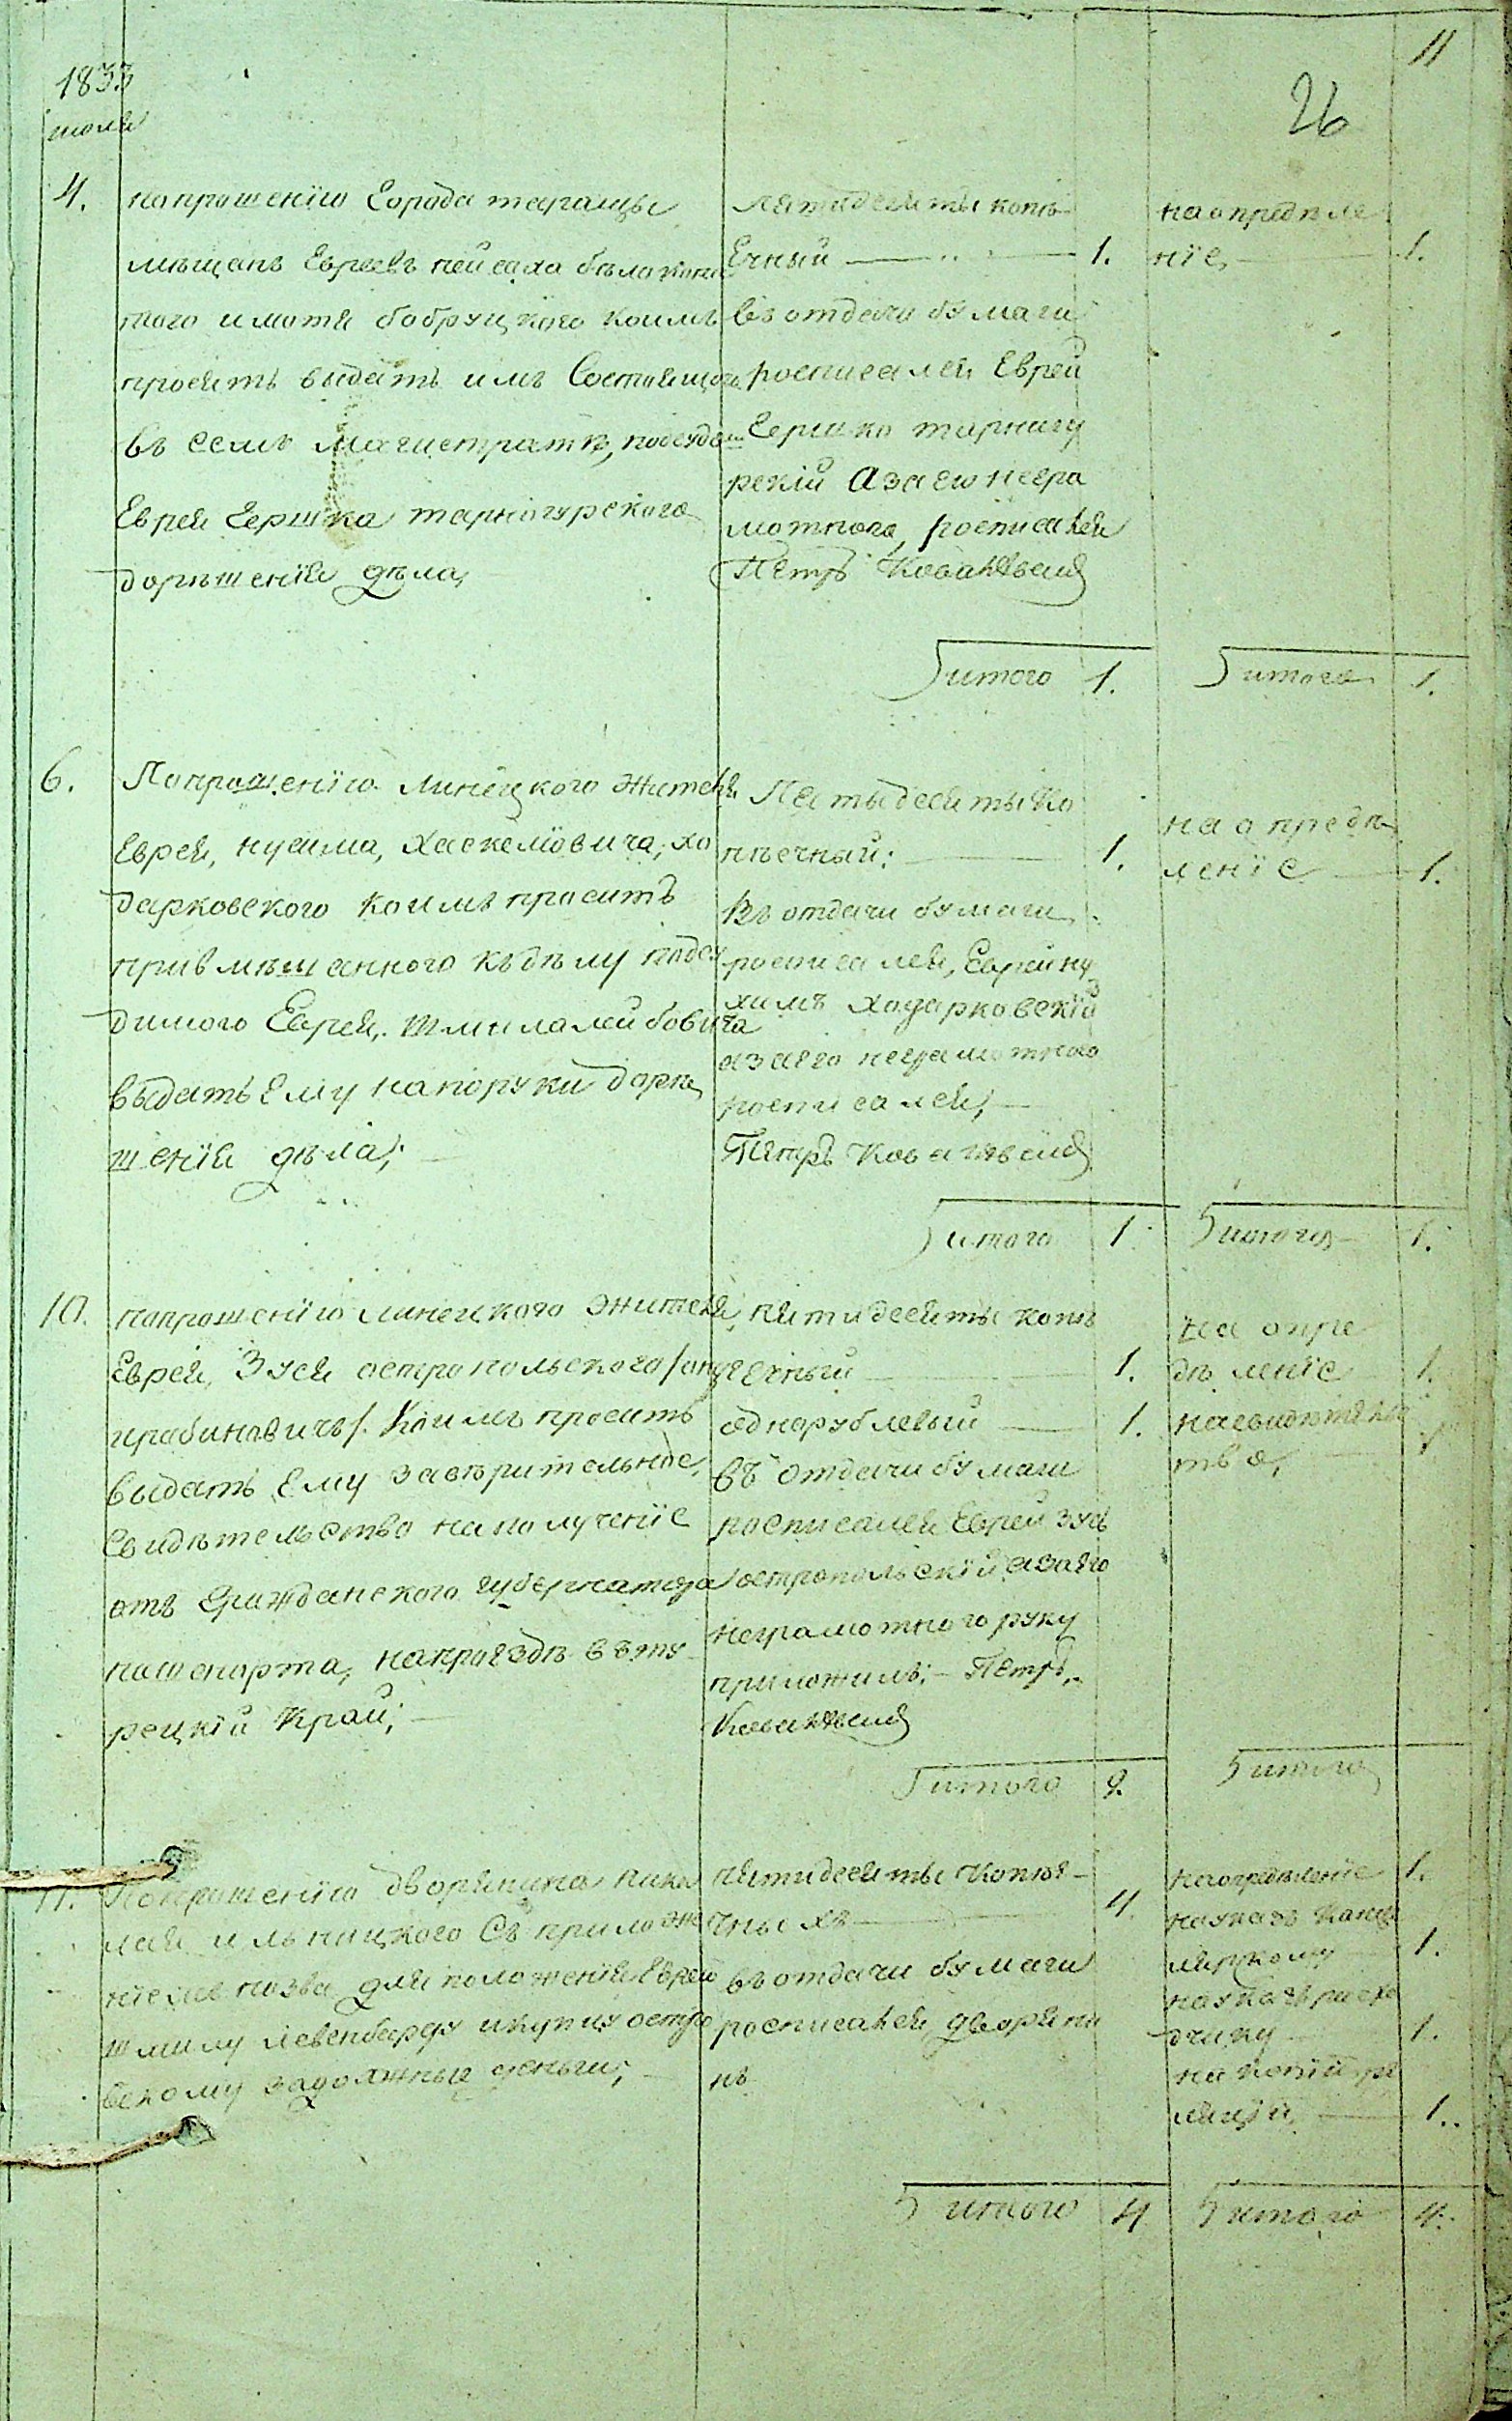 11
26
1833
июля
4.
по прошенію Города таращы
мещанъ Евреевъ пейсаха белокопы
того и мотя бобруцкого коимъ
просятъ выдать имъ Состоящого
въ семъ Магистратѣ, подсудом
Еврея Гершка тарногурского
дорѣшенія дѣла,
пятидесяты копѣ
Ечный 1.
въ отдачи бумаги
росписался Еврей
Гершко тарногу
рскій А за его негра
мотного, росписался
Петръ Ковалевский
итого 1.
на опредѣле
ніе, 1.
итого 1.
6.
По прошенію Линецкого жителя
Еврея, нусима, Хаскелювича, хо
дарковского коимъ проситъ
привмѣшанного къ дѣлу подсу
димого Еврея, Шмила лейбовича
выдать Ему на поруки дорѣ
шенія дѣла;
Пятыдесяты Ко
пѣечный; 1.
Въ отдачи бумаги
росписался, Еврей ну
химъ ходарковскій
а за его неграмотного
росписался,
Петръ Ковалевский
итого 1.
на опредѣ
леніе 1.
итого 1.
10.
по прошенію линецкого жителя,
Еврея, Зуся остропольского
грабиновичъ/. Коимъ проситъ
выдать Ему завѣрительное,
Свидѣтельство на полученіе
отъ Гражданского губернатора
пашепорта, на проездъ въ ту
рецкій Край;
пятидесяты копѣ
ечный 1.
однорублевый 1.
въ отдачи бумаги
росписался Еврей Зусь
остропольскій а за его
неграмотного руку
приложилъ; Петръ,
Ковалевский
итого 2.
На опре
дѣленіе 1.
на свидѣтельс
тво, 1
итого
11.
По прошенію дворянина никол
лая ильницкого Съ приложе
ніемъ позва для положенія Еврею
шмилу левенбарду и купцу остро
вскому задолжные деньги;
пятидесяты копѣе
чныхъ 4.
въ отдачи бумаги
росписался, дворяни
нъ
итого 4
на опредѣленіе 1.
на указъ Канце
лярскому 1.
на указъ расхо
дчику 1.
на копіи ре
ляціи, 1.
итого 4.